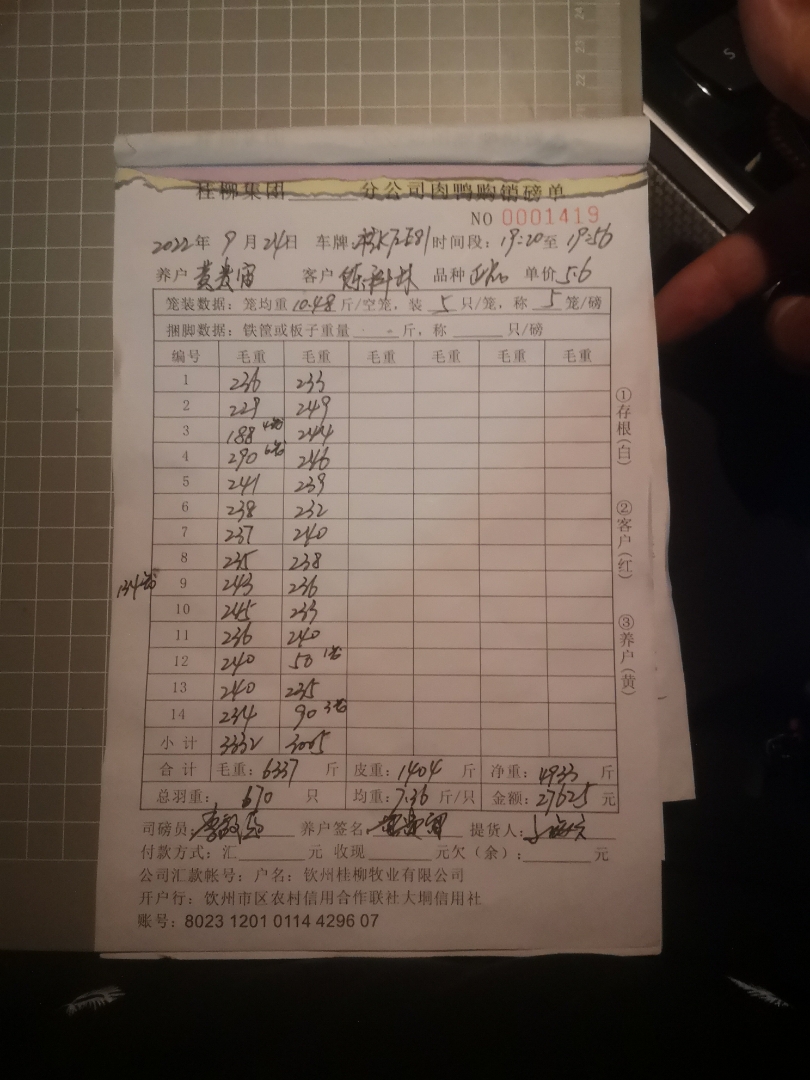 桂柳集团 分公司肉鸭购销磅单
NO 0001419
2022年 9月24日 车牌: 时间段: 19:20至19:56
养户 客户 品种 单价5.6
笼装数据: 笼均重10.48斤/空笼, 装5只/笼, 称5笼/磅
捆脚数据: 铁筐或板子重量 斤, 称 只/磅
编号 毛重 毛重 毛重 毛重 毛重 毛重
1 236 233
2 229 249
3 188 4笼 244
4 290 6笼 246
5 241 239
6 238 232
7 237 240
8 235 238
134笼 9 243 236
10 245 233
11 236 240
12 240 50 1笼
13 240 235
14 234 90 3笼
小计 3332 3005
合计 毛重: 6337 斤 皮重: 1404 斤 净重: 4933 斤
总羽重: 670 只 均重: 7.36 斤/只 金额: 27625 元
司磅员: 养户签名 提货人:
付款方式: 汇 元 收现 元欠(余): 元
公司汇款帐号: 户名: 钦州桂柳牧业有限公司
开户行: 钦州市区农村信用合作联社大垌信用社
账号: 8023 1201 0114 4296 07
①存根(白)
②客户(红)
③养户(黄)
S
24
23
22